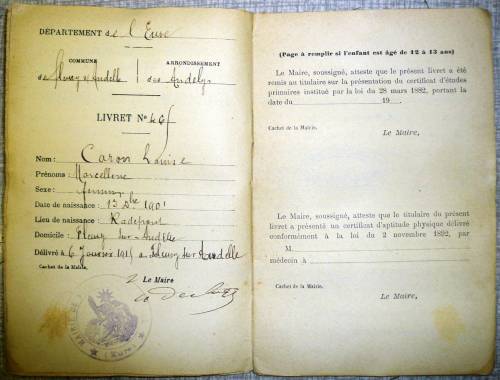 DÉPARTEMENT de l'Eure
COMMUNE
ARRONDISSEMENT
de Fleury s/ Andelle
des Andelys
LIVRET No
Nom : Caron Louise
Prénoms : Marcelline
Sexe : féminin
Date de naissance : 13 Xbre 1901
Lieu de naissance : Radepont
Domicile : Fleury sur Andelle
Délivré à Fleury sur Andelle
Cachet de la Mairie.
Le Maire
MAIRIE DE
(Eure)
(Page à remplir si l'enfant est âgé de 12 à 13 ans)
Le Maire, soussigné, atteste que le présent livret a été
remis au titulaire sur la présentation du certificat d'études
primaires institué par la loi du 28 mars 1882, portant la
date du 19 .
Cachet de la Mairie.
Le Maire,
Le Maire, soussigné, atteste que le titulaire du présent
livret a présenté un certificat d'aptitude physique délivré
conformément à la loi du 2 novembre 1892, par
M.
médecin à
Cachet de la Mairie.
Le Maire,